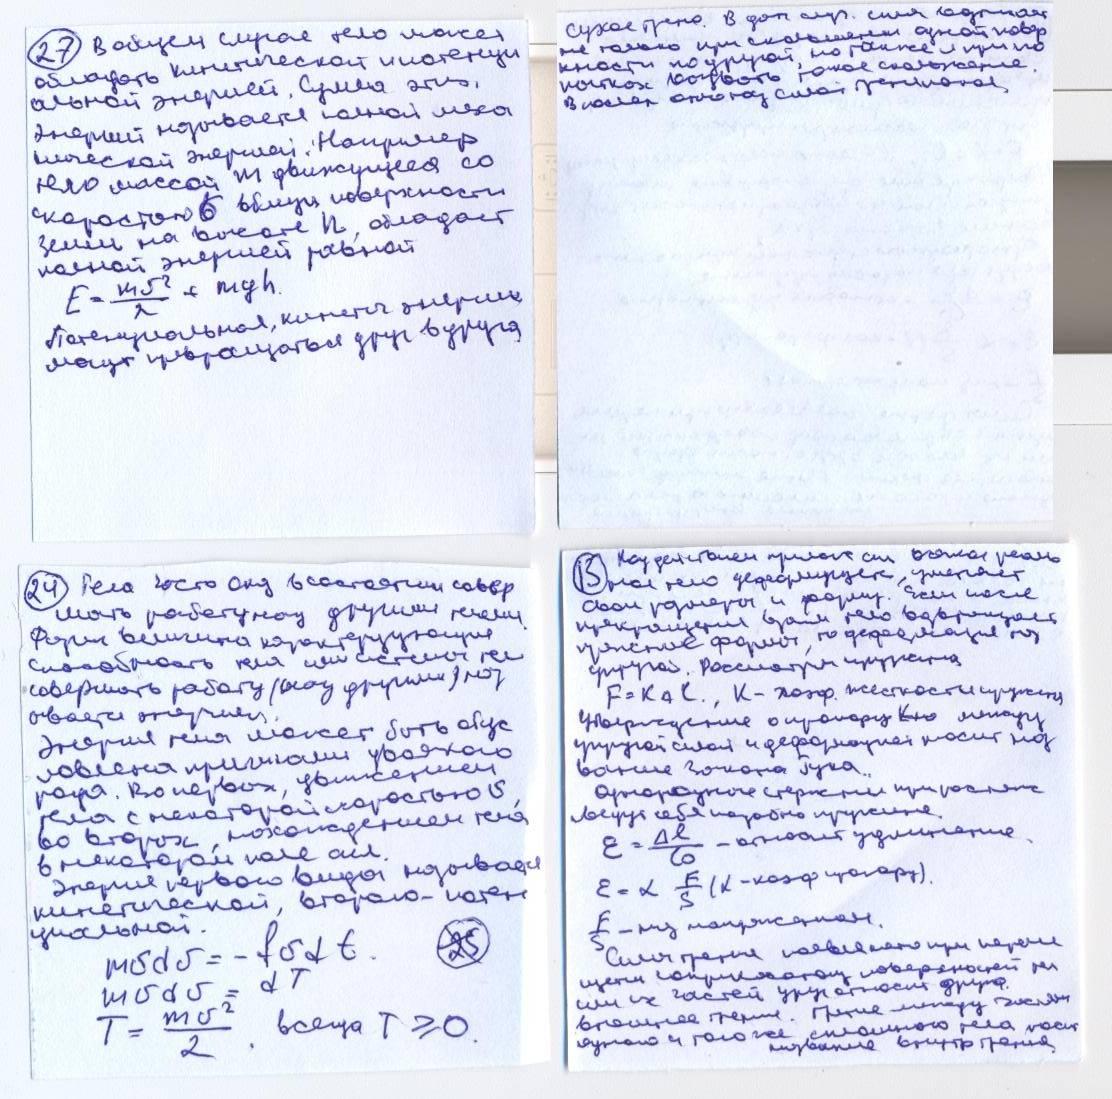 27 В общем случае тело может
обладать кинетической и потенци
альной энергией. Сумма этих
энергий называется полной меха
нической энергией. Например
тело массой m движущееся со
скоростью υ вблизи поверхности
земли на высоте h, обладает
полной энергией равной
E = mυ²/2 + mgh.
Потенциальная, кинетич энергии
могут превращаться друг в друга
сухое трено. В
не только при скольжении одной повер
хности по другой, но также и при по
пытках вызвать такое скольжение
В послед силой трения покоя
24 Тела часто в состоянии совер
шать работу над другими телами.
Физич величина характеризующая
способность тела или системы тел
совершать работу (над другими) наз
ывается энергией.
Энергия тела может быть обус
ловлена причинами двоякого
рода. Во первых, движением
тела с некоторой скоростью υ,
во вторых, нахождением тела
в некотором поле сил.
Энергия первого вида называется
кинетической, второго - потен
циальной.
mυdυ = -fυdt. 25
mυdυ = dT
T = mυ²/2. всегда T ≥ 0.
13 Под действием прилож сил всякое реаль
ное тело деформирует,
свои размеры и форму. Если после
прекращения сил тело
форму, то деформация наз
упругой. Рассмотрим пружину
F = KΔl., K - коэф. жесткости пружины
Утверждение о между
упругой силой и деформацией носит наз
вание закона Гука.
Однородные стержни при растяж
ведут себя подобно пружине
ε = Δl/l₀ - относит удлинение.
ε = α F/S (α - коэф пропорц).
F/S - наз напряжением.
Силы трения появляются при переме
щении соприкасающ поверхностей тел
или их частей друг относит друга.
внешнее трение. Трение между частями
одного и того же сплошного тела носит
название внутр трения